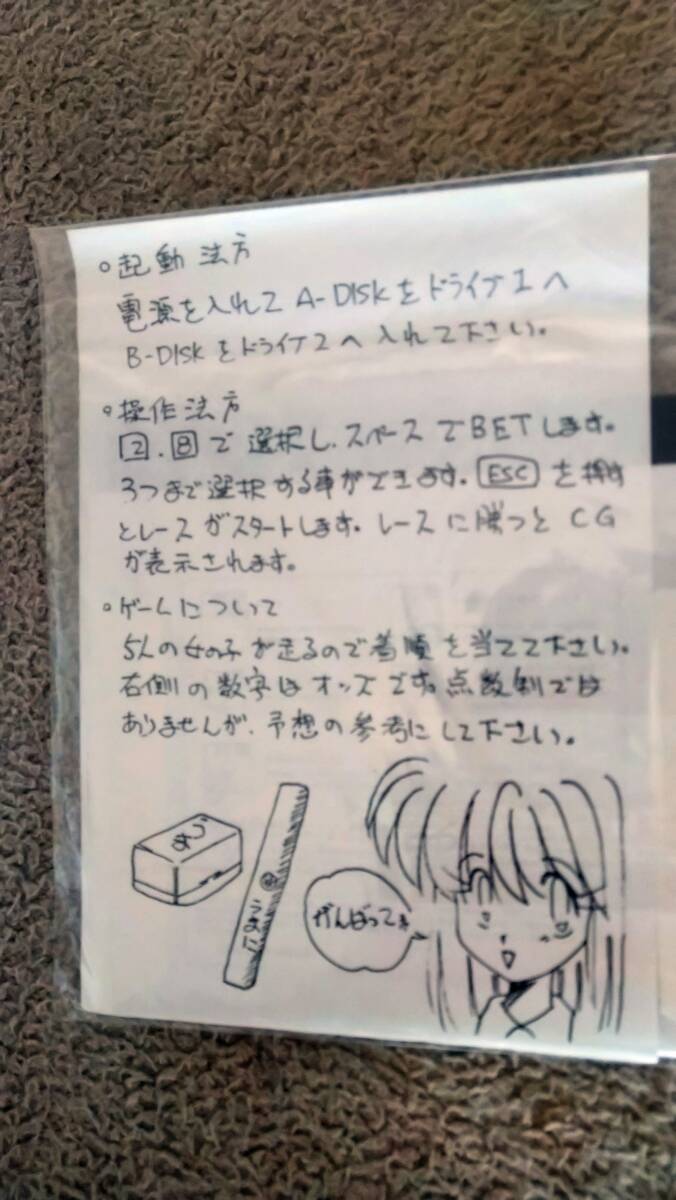 。起動法方
電源を入れて A-DISKをドライブ1へ
B-DISKをドライブ2へ入れて下さい。
。操作法方
2.8で選択し、スペースでBETします。
3つまで選択する事ができます。ESCを押す
とレースがスタートします。レースに勝つとCG
が表示されます。
。ゲームについて
5人の女の子が走るので着順を当てて下さい。
右側の数字はオッズです。点数制では
ありませんが、予想の参考にして下さい。
がんばってネ